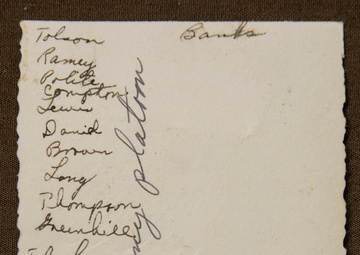 Tolson
Ramey
Polite
Compton
Lewis
David
Brown
Long
Thompson
Greenhill
Banks
my platoon